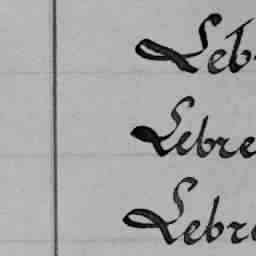 Leb
Lebre
Lebr